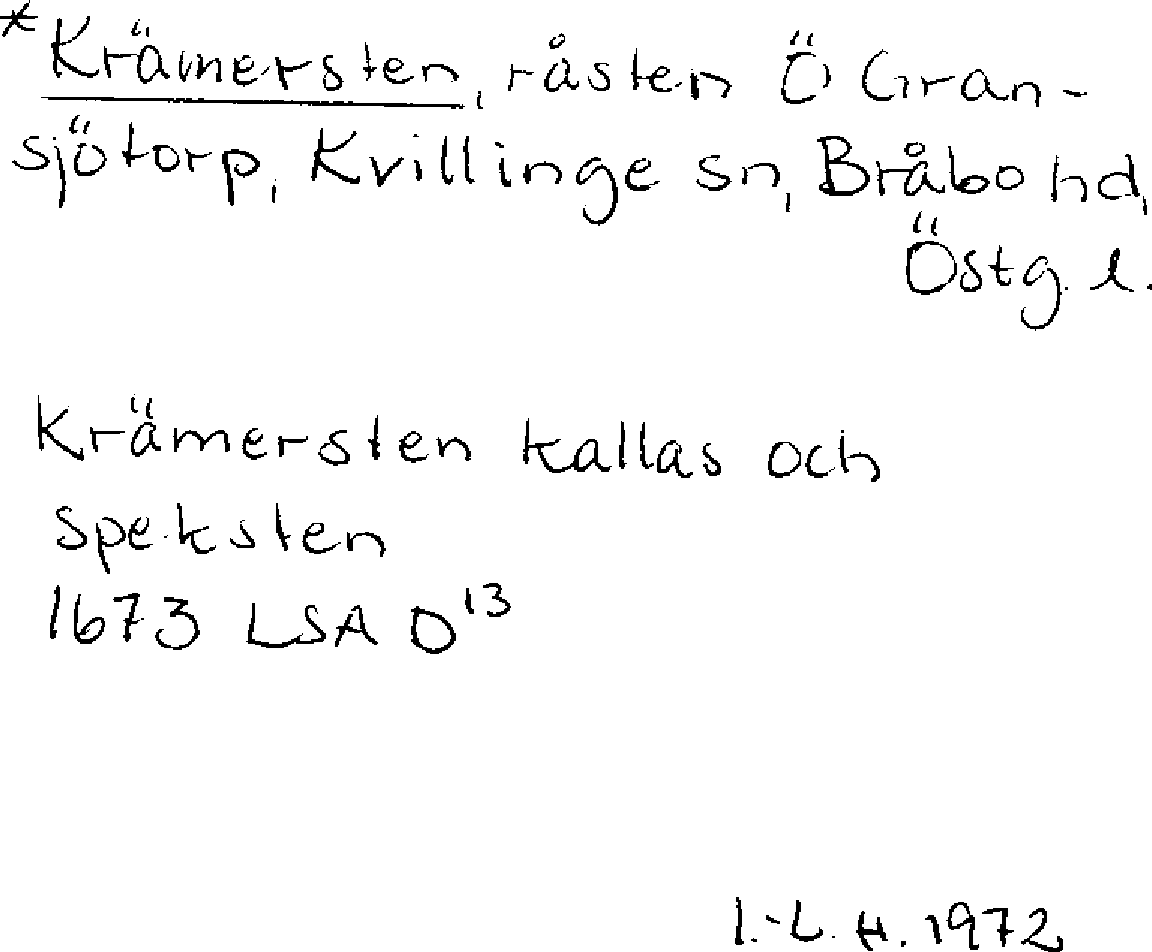 *Krämersten, råsten Ö Gran-
sjötorp, Kvillinge sn, Bråbo hd,
Östg. l.
Krämersten kallas och
speksten
1673 LSA D¹³
I.-L. H. 1972